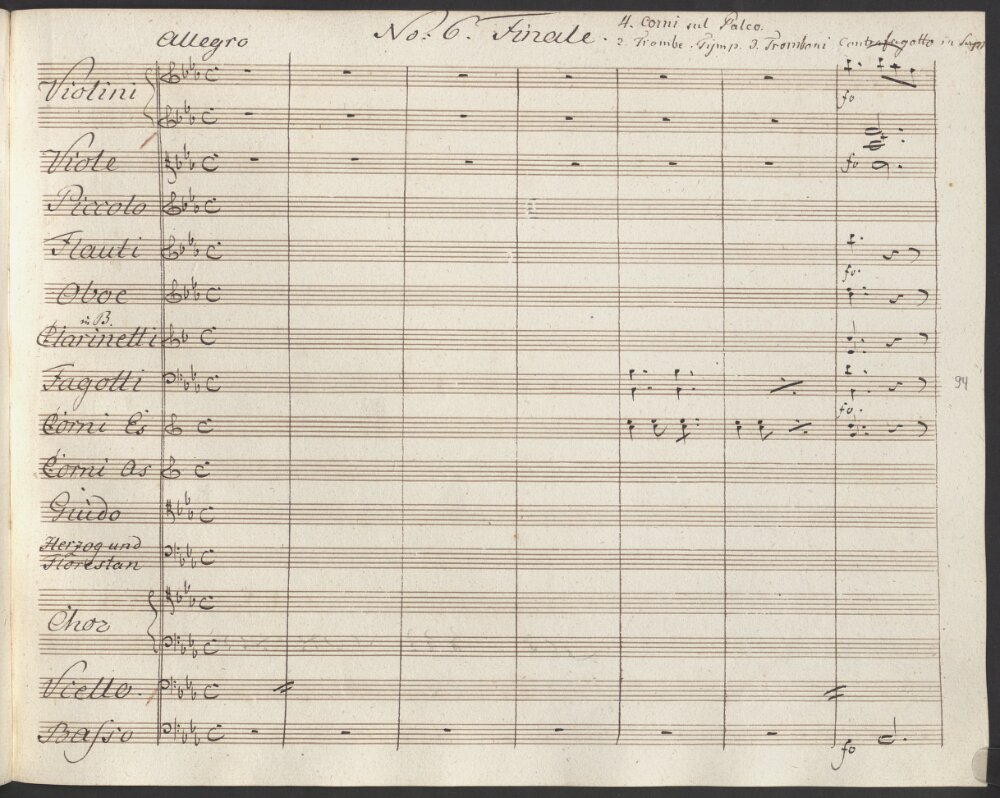 Allegro No. 6. Finale. 4. Corni sul Palco.
2. Trombe. Tymp. 3. Tromboni Contrafagotto in
Violini
fo
Viole
fo
Piccolo
Flauti
fo.
Oboe
in B.
Clarinetti
Fagotti
94
fo.
Corni Es
Corni As
Guido
Herzog und
Florestan
Chor
Vcello.
Basso
fo